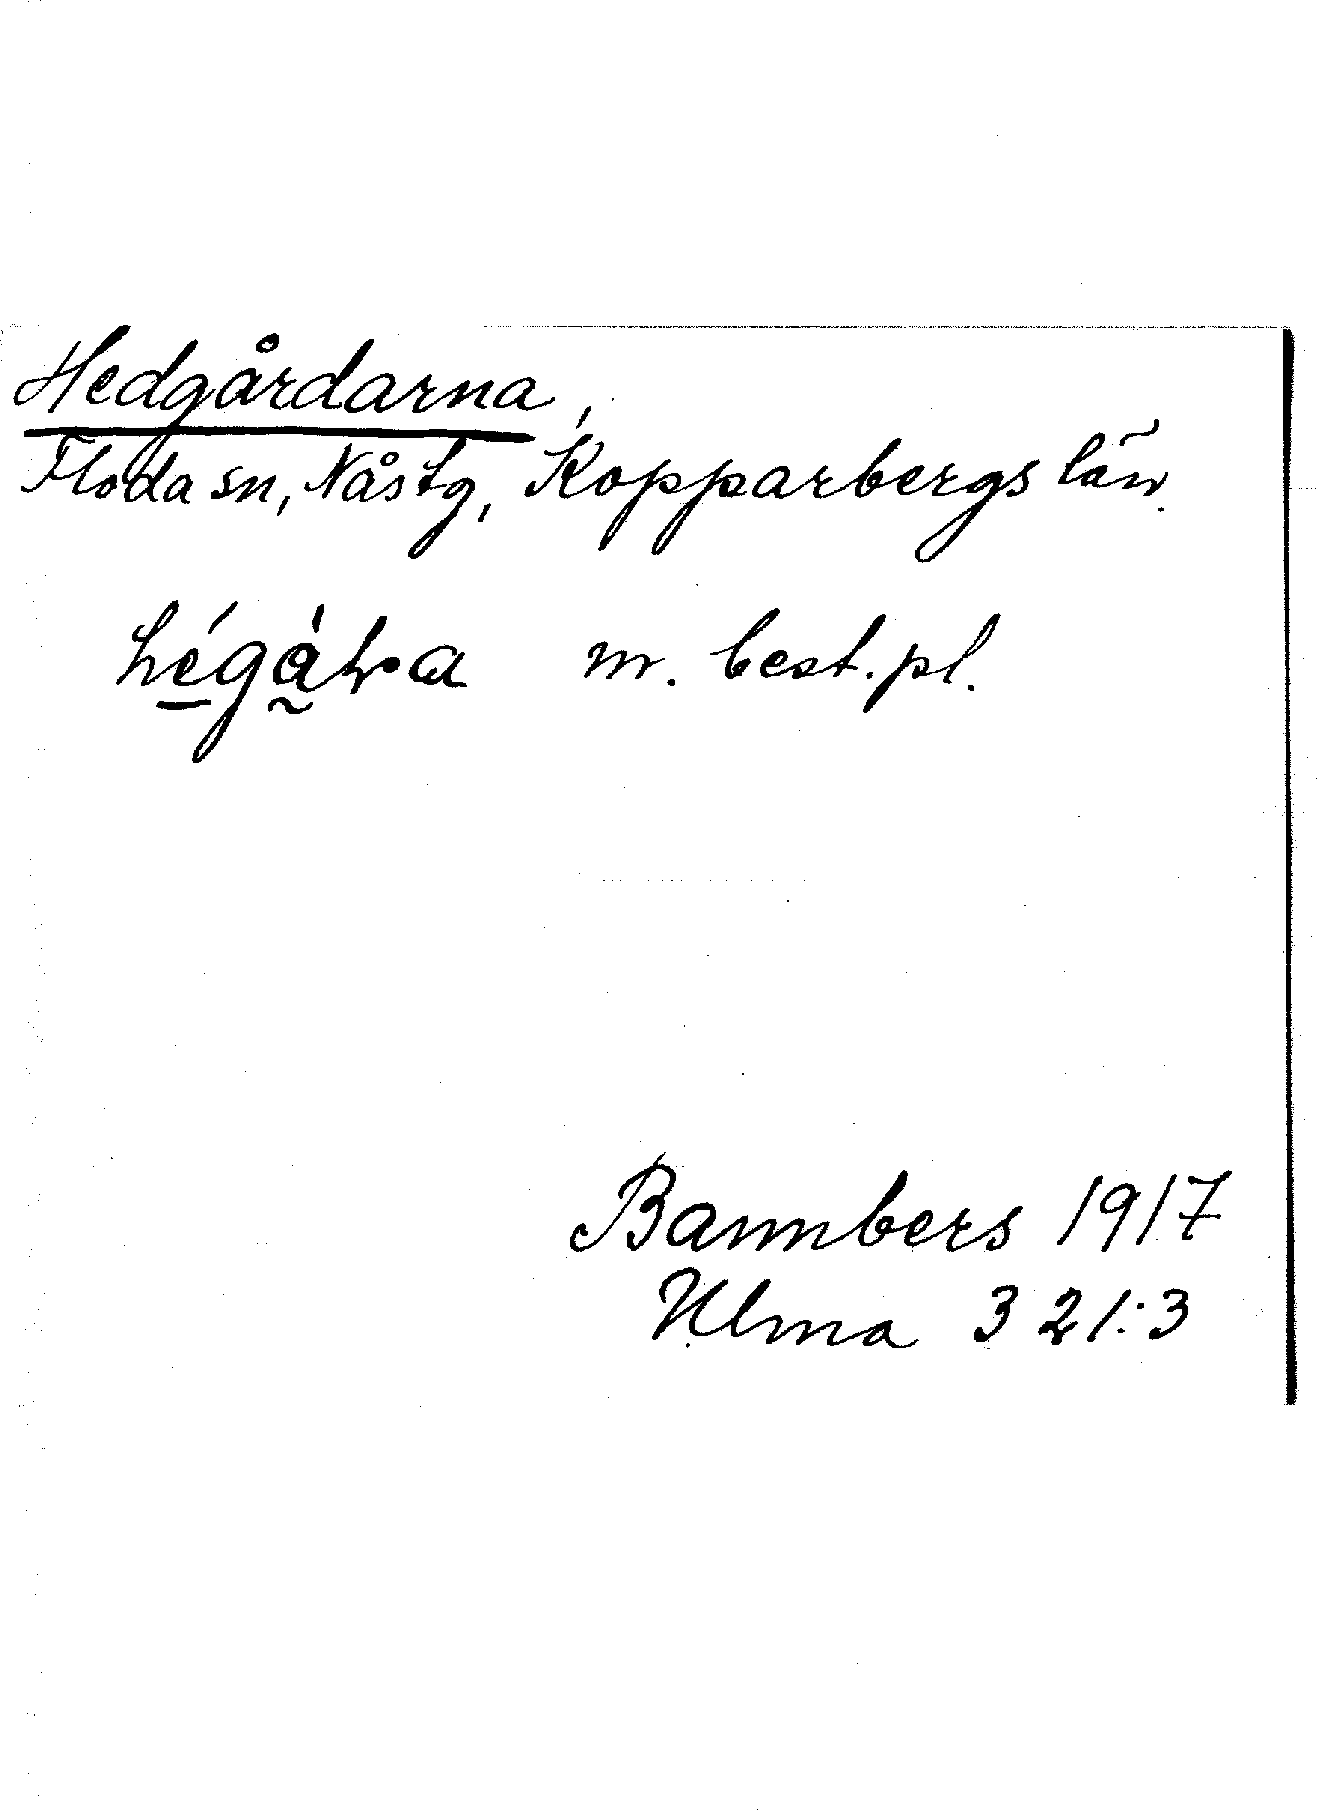 Hedgårdarna,
Floda sn, Nås tg, Kopparbergs län.
m. best. pl.
Bannbers 1917
Ulma 321:3